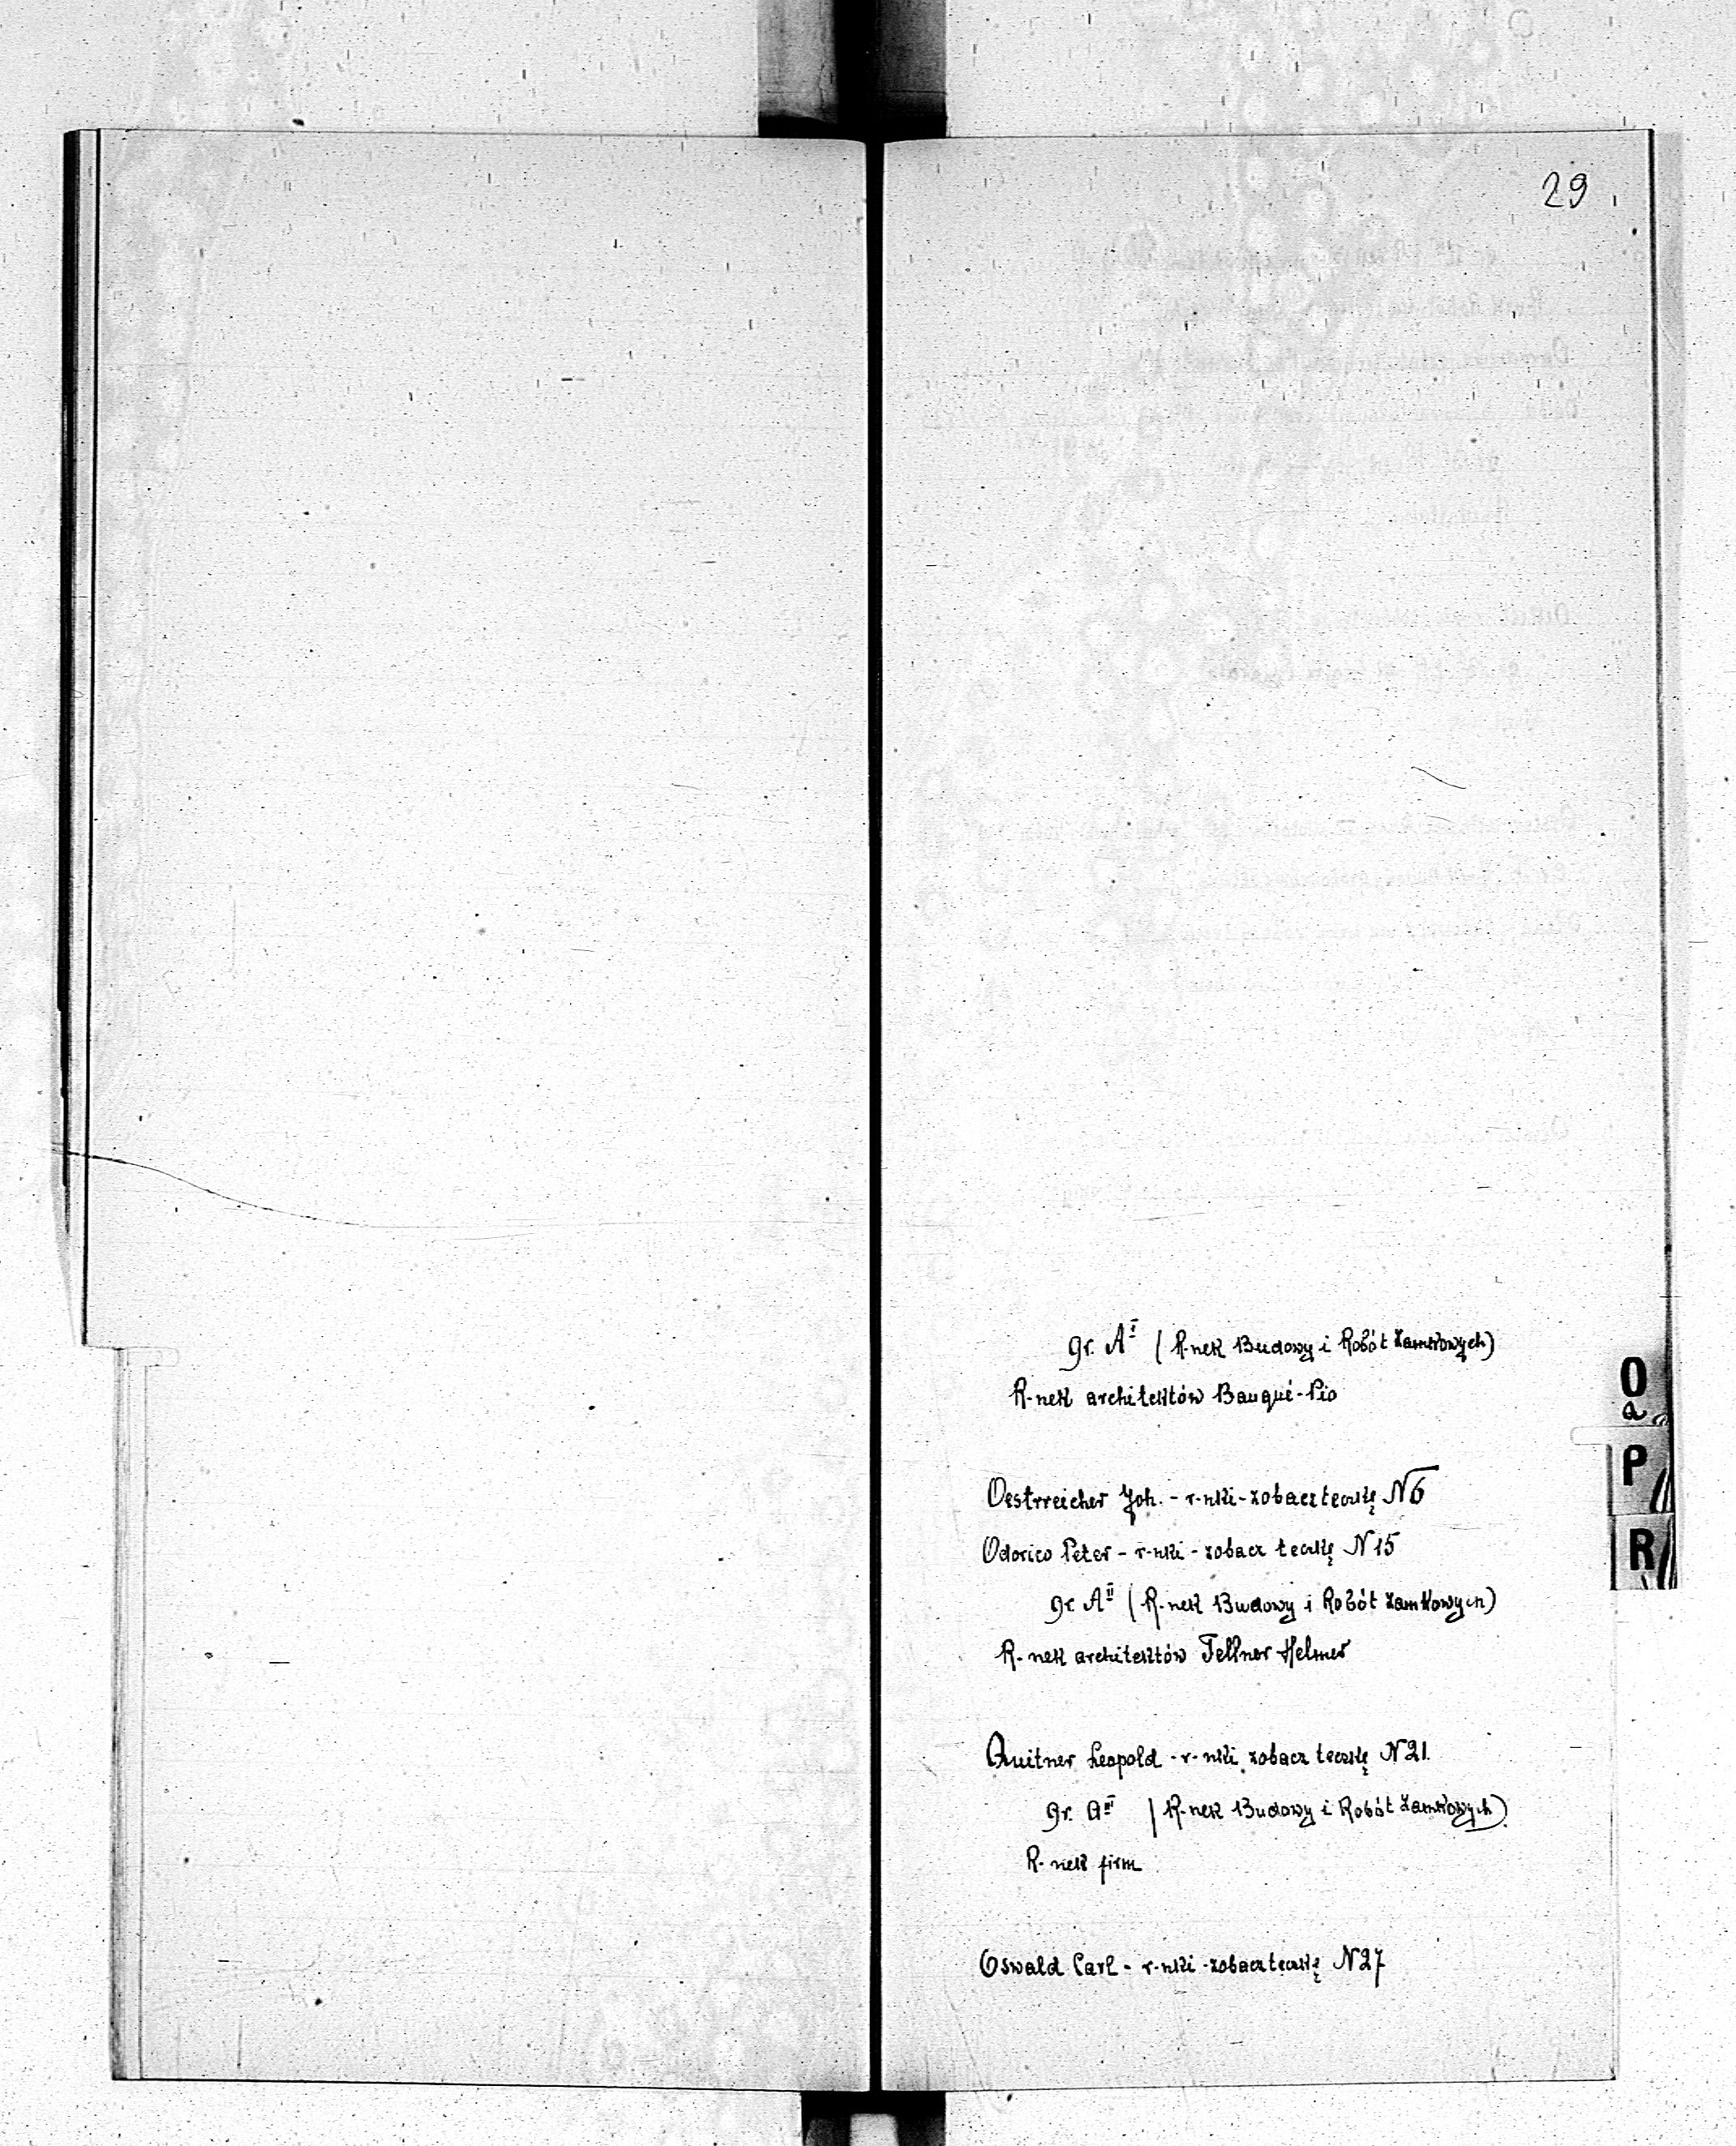 29
gr. A I (R-nek Budowy i Robót Zamkowych)
R-nek architektów Bauqué-Pio
Oestrreicher Joh. - r-nki - zobacz teczkę N 6
Odorico Peter - r-nki - zobacz teczkę N 15
gr. A II (R-nek Budowy i Robót Zamkowych)
R-nek architektów Fellner Helmer
Quitner Leopold - r-nki zobacz teczkę N 21.
gr. A III (R-nek Budowy i Robót Zamkowych)
R-nek firm
Oswald Carl - r-nki - zobacz teczkę N 27
O
Q
P
R